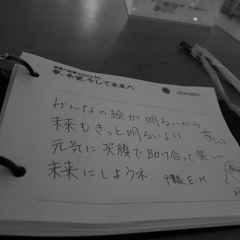 夢、希望、そして未来へ
みんなの絵が明るいから
未来もきっと明るいよ!!
元気に笑顔で助け合って楽しい
未来にしようネ E.M